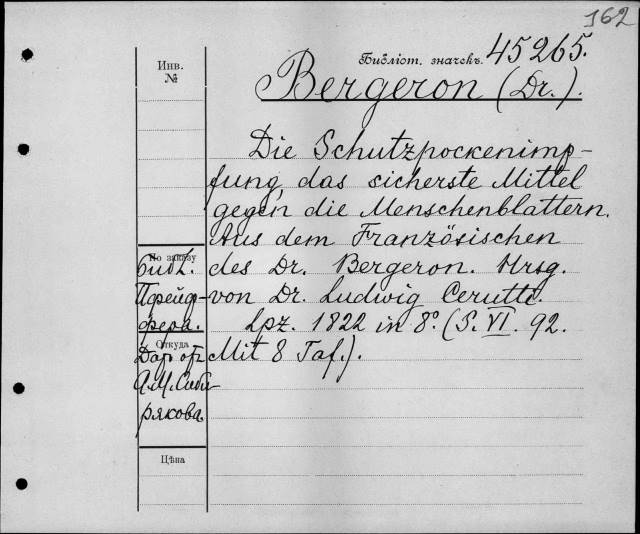 162
Библіот. значекъ. 45265.
Инв.
№
Bergeron (Dr.).
Die Schutzpockenimp-
fung, das sicherste Mittel
gegen die Menschenblattern.
Aus dem Französischen
des Dr. Bergeron. Hrsg.
von Dr. Ludwig Cerutti.
Lpz. 1822 in 8º. (S. VI. 92.
Mit 8 Taf.).
По заказу
Библ.
Пфейф-
фера.
Откуда
Дар от
А.М. Сиби-
рякова.
Цѣна